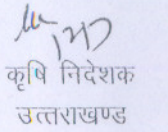 कृषि निदेशक
उत्तराखण्ड